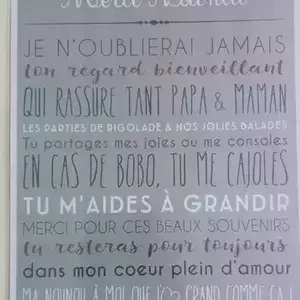 Merci Nounou
JE N'OUBLIERAI JAMAIS
ton regard bienveillant
QUI RASSURE TANT PAPA & MAMAN
LES PARTIES DE RIGOLADE & NOS JOLIES BALADES
Tu partages mes joies ou me consoles
EN CAS DE BOBO, TU ME CAJOLES
TU M'AIDES À GRANDIR
MERCI POUR CES BEAUX SOUVENIRS
tu resteras pour toujours
dans mon coeur plein d'amour
MA NOUNOU À MOI QUE J'♡ GRAND COMME ÇA !